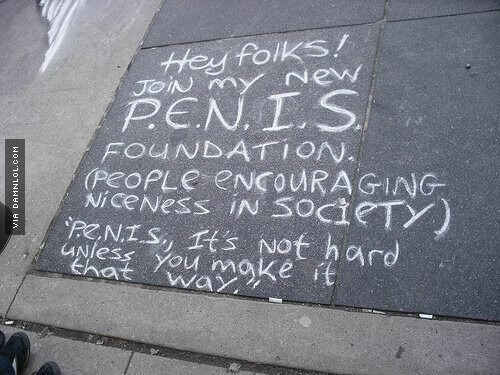 Hey folks!
JOIN my new
P.E.N.I.S.
FOUNDATION.
(PEOPLE ENCOURAGING
NICENESS IN SOCIETY)
"P.E.N.I.S., It's not hard
unless you make it
that way."
VIA DAMNLOL.COM